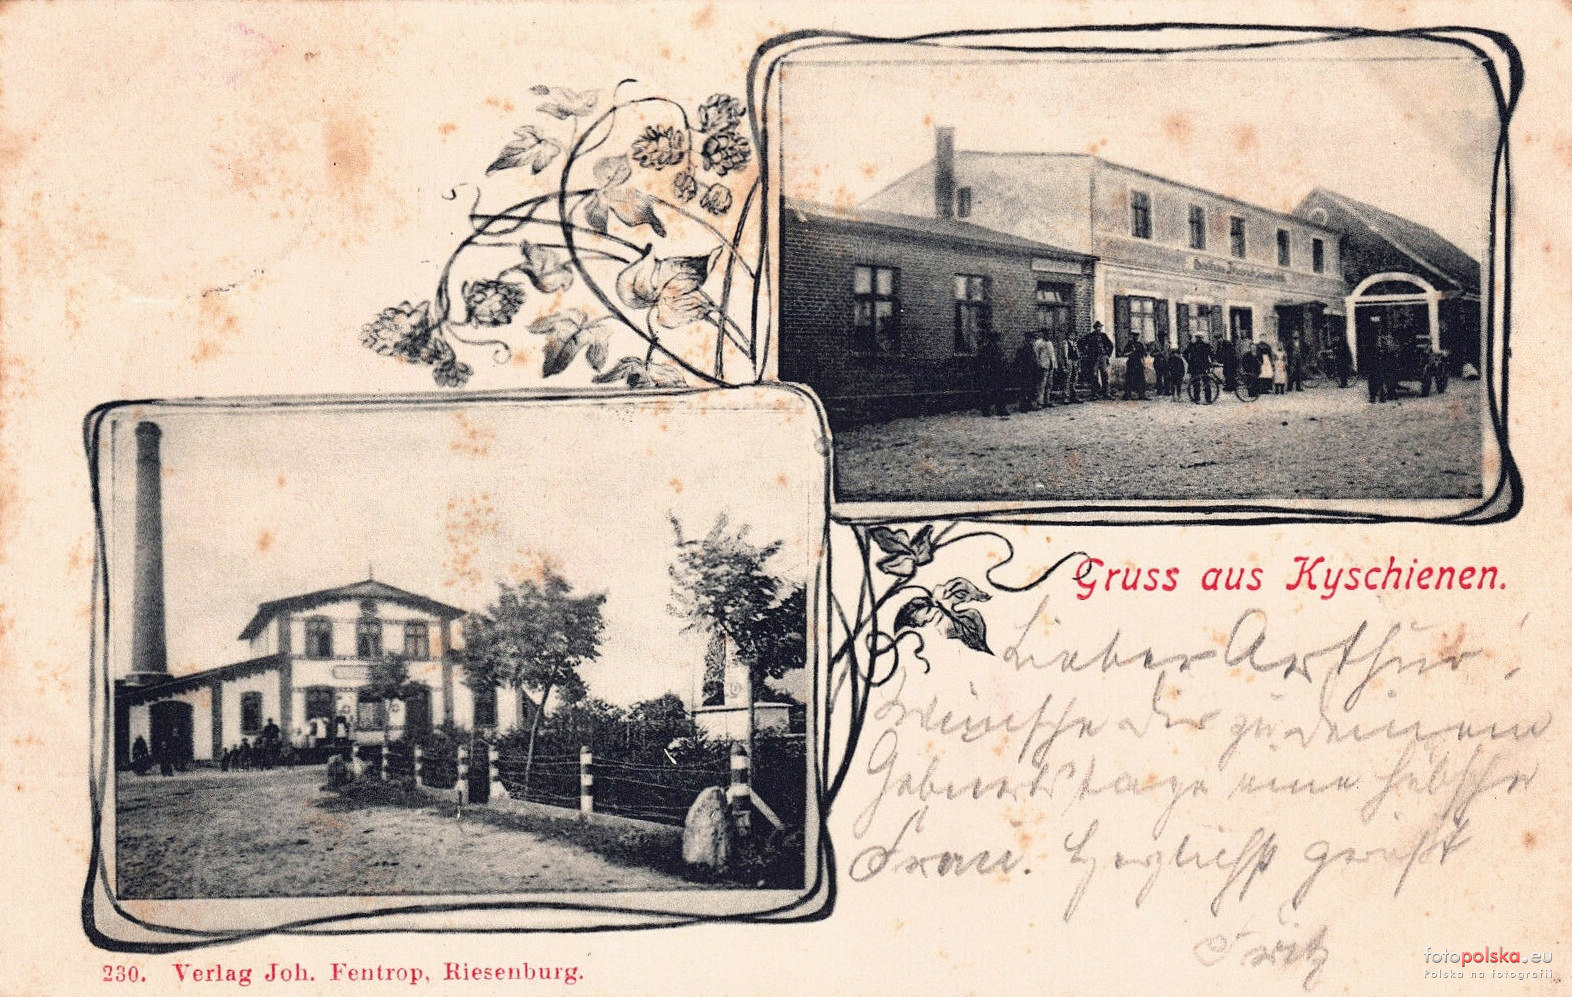 Gruss aus Kyschienen.
Lieber Arthur!
Wünsche dir zu deinem
Geburtstage eine hübsche
Frau. Herzlichst grüßt
Fritz
230. Verlag Joh. Fentrop, Riesenburg.
fotopolska.eu
Polska na fotografii